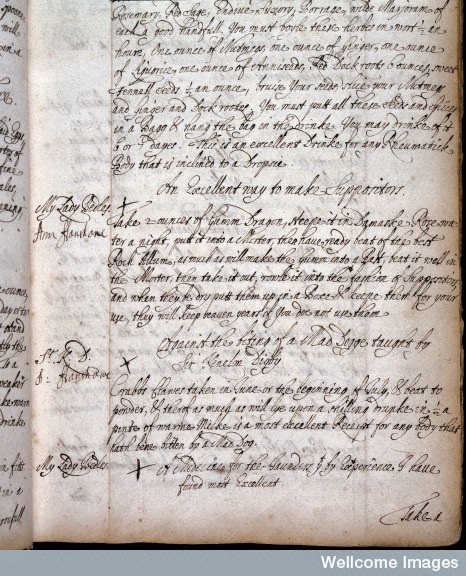 Rosemary, Red Sage, Endive Sucory, Borrage, wilde Marjoram of
each a good handfull. You must boyle these herbes in wort ½ an
houre, One ounce of Nutmegs, one ounce of Ginger, one ounce
of Liquorice one ounce of Anniseeds, Red Dock roots 6 ounces, sweet
Fennell seeds ½ an ounce, bruise your seeds, slice your Nutmegs
and Ginger and Dock rootes, You must put all these seeds and spices
in a Bagg & hang the bag in the drinke. You may drinke of it
6 or 7 dayes. This is an excellent Drinke for any Rheumatick
Body that is inclined to a Dropsie.
An Excellent way to make Suppositors.
My Lady Bedles
Ann Fanshawe
Take 2 ounces of Gumm Dragon, steepe it in Damaske Rose wa-
ter a night, putt it into a Morter, then have ready beat of the best
Rock Allum, as much as will make the gumm into a past, beat it well in
the Morter, then take it out, rowle it into the fashion of Suppositors,
and when they be dry putt them up in a Boxe & keepe them for your
use, they will keep seaven years if you doe not use them
Against the biting of a Mad Dogge taught by
Sir Kenelm Digby
Sr. K. D.
A: Fanshawe
Crabb Clawes taken in June or the beginning of July, & beat to
powder, & thereof as much as will lye upon a shilling drunke in ½ a
pinte of warme Milke is a most excellent Receipt for any body that
hath bene bitten by a Mad Dog.
My Lady Bedles
A Medicine for the Jaundies yt by Experience I have
found most Excellent.
Take a
Wellcome Images